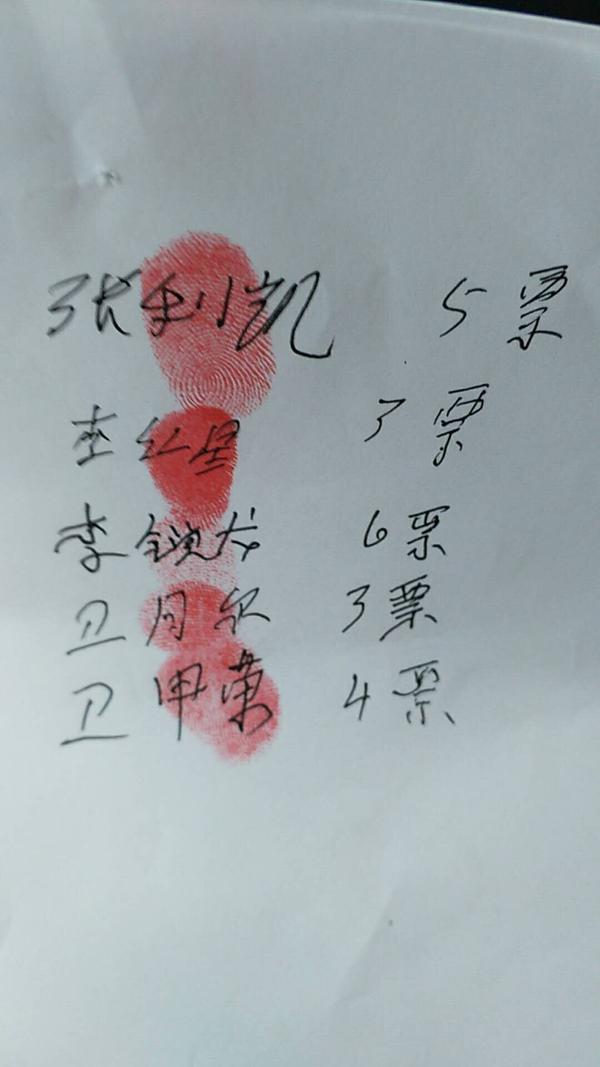 张利凯 5票
李红星 3票
李锁龙 6票
卫月 3票
卫甲荣 4票